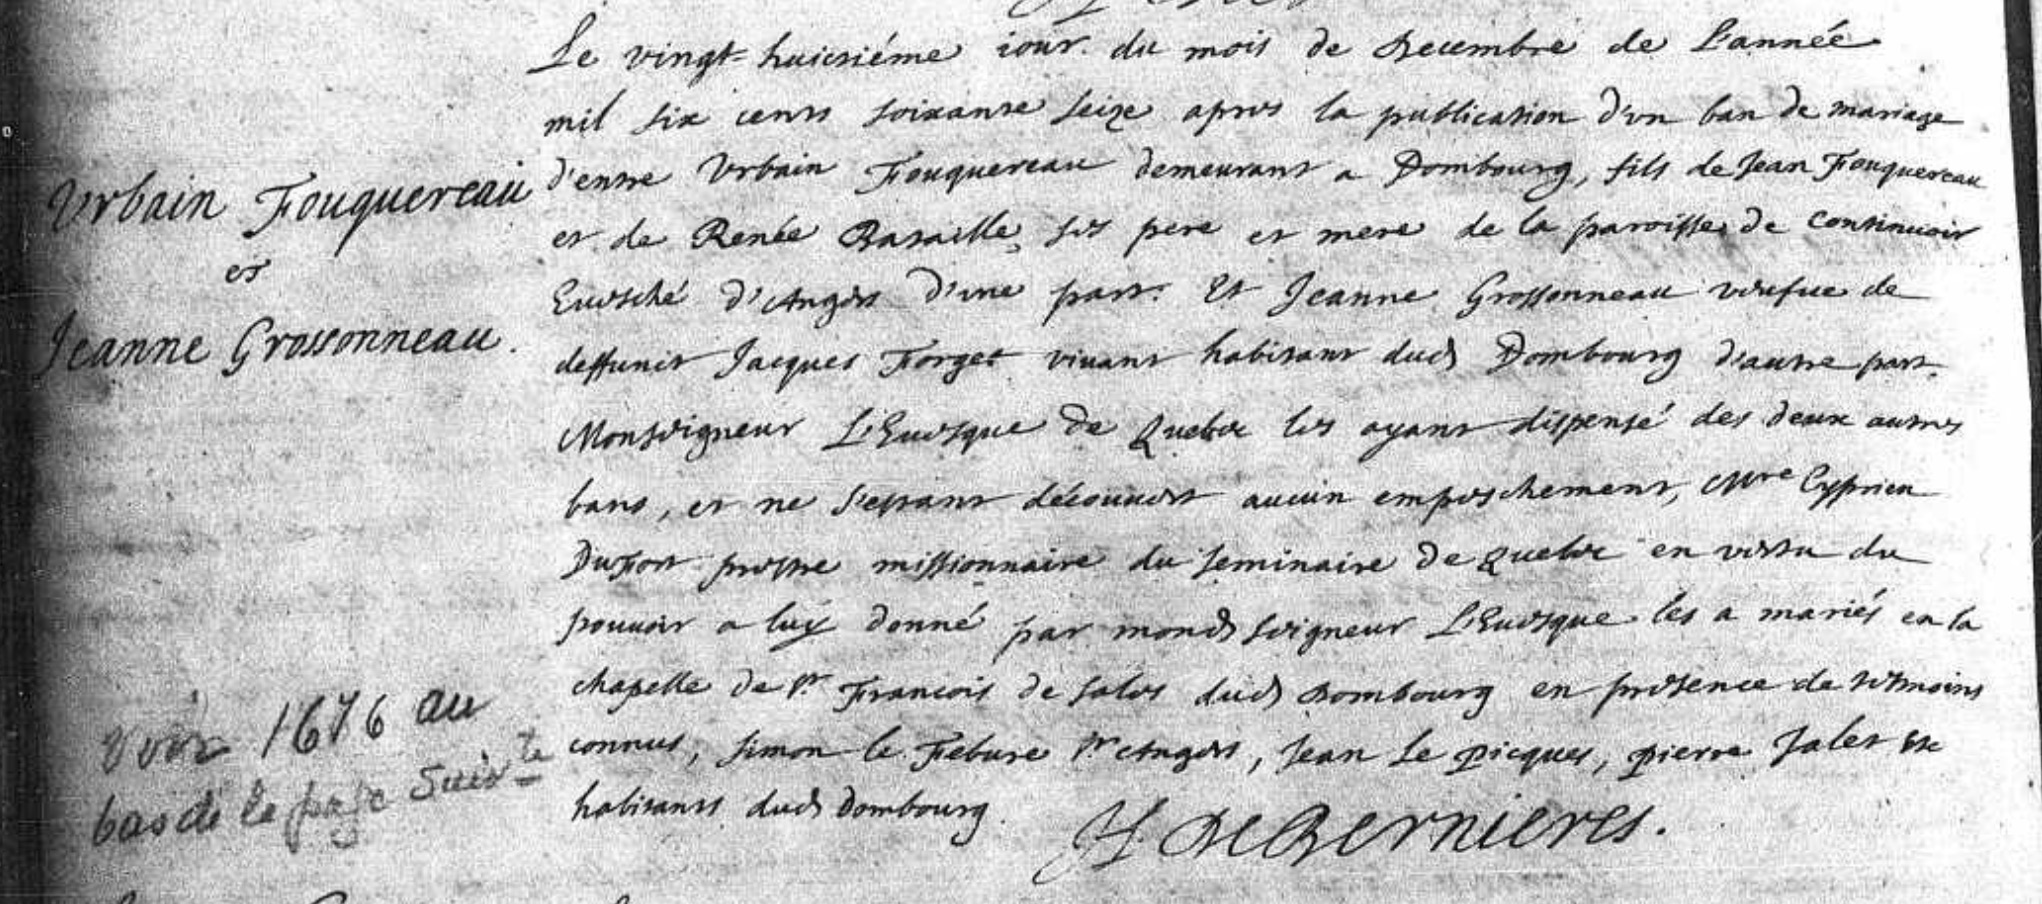 Urbain Fouquereau
et
Jeanne Grossonneau.
voir 1676 au
bas de la page suivte
Le vingt-huictiéme iour du mois de Decembre de L'année
mil six cents soixante seize apres la publication d'vn ban de mariage
d'entre Vrbain Fouquereau demeurant a Dombourg, fils de Jean Fouquereau
et de Renée Bataille, ses pere et mere de la paroisse de Continuoir
Euesché d'Angers d'vne part. Et Jeanne Grossonneau veufue de
deffunct Jacques Forget viuant habitant dud Dombourg d'autre part.
Monseigneur L'Euesque de Quebec les ayant dispensé des deux autres
bans, et ne s'estant découuert aucun empeschement, Mre Cyprien
Dufort prestre missionnaire du seminaire de Quebec en vertu du
pouuoir a luy donné par mond seigneur L'Euesque les a mariés en la
chapelle de St Francois de Sales dud Dombourg en presence de tesmoins
connus, Simon le Febure Sr Angers, Jean Le picques, pierre Jalet etc
habitants dud Dombourg.
H. DeBernieres.